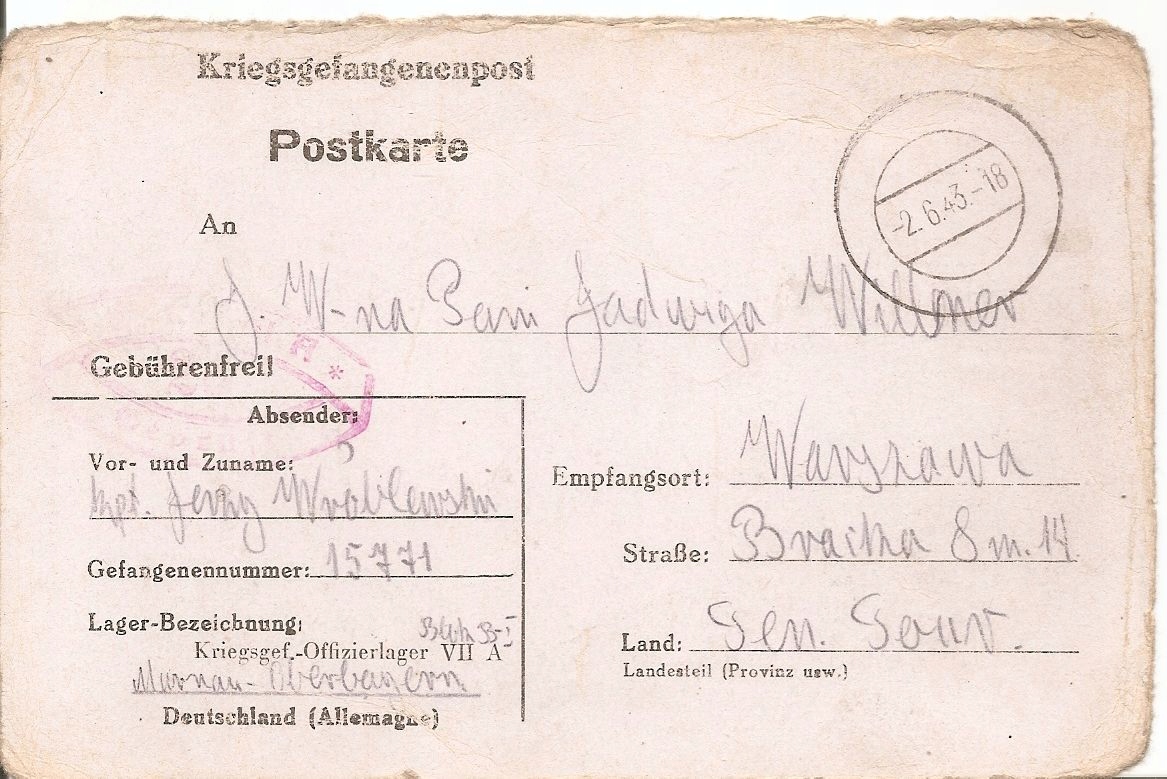 Kriegsgefangenenpost
Postkarte
-2.6.43.-18
An
J. W-na Pani Jadwiga Willner
Gebührenfrei!
Absender:
Vor- und Zuname:
kpt. Jerzy Wróblewski
Gefangenennummer: 15771
Lager-Bezeichnung:
Block B-I
Kriegsgef.-Offizierlager VII A
Murnau-Oberbayern
Deutschland (Allemagne)
Empfangsort: Warszawa
Straße: Bracka 8 m. 14.
Land: Gen. Gouv.
Landesteil (Provinz usw.)